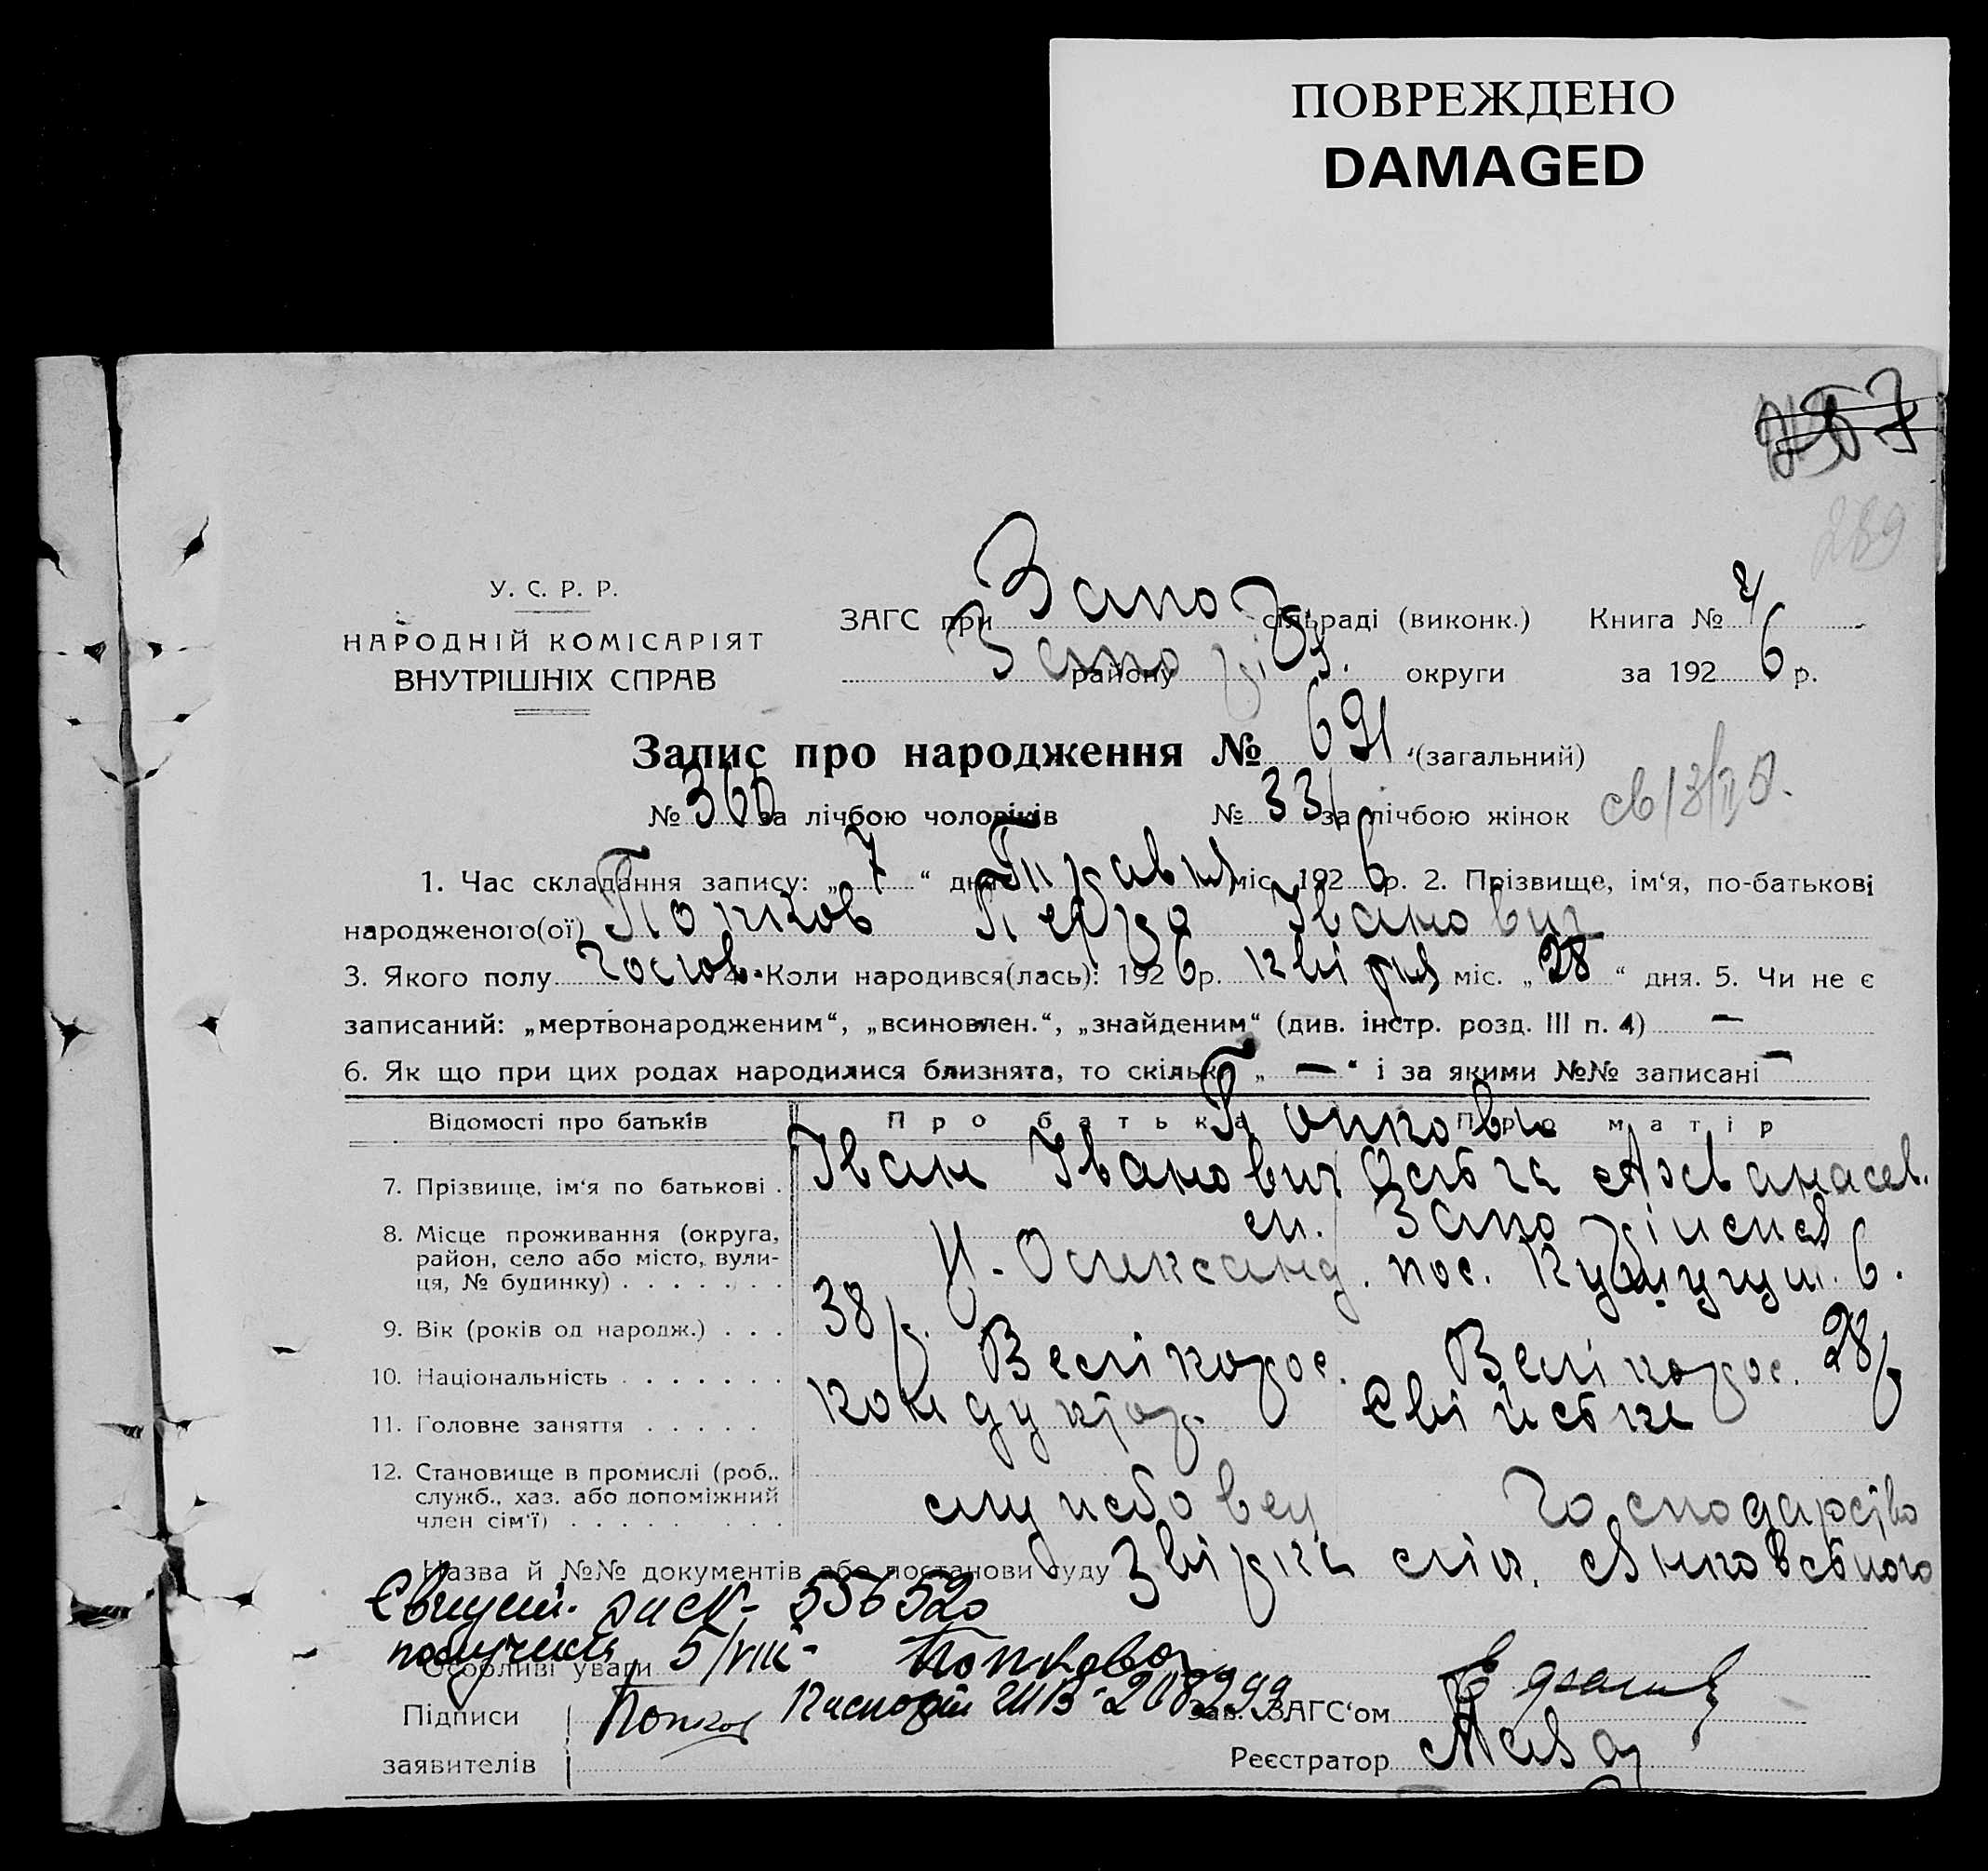 ПОВРЕЖДЕНО
DAMAGED
У. С. Р. Р.
НАРОДНІЙ КОМІСАРІЯТ
ВНУТРІШНІХ СПРАВ
289
ЗАГС при Запор. сільраді (виконк.) Книга №
району Запоріз. округи за 1926 р.
Запис про народження № 691 (загальний)
№ 360 за лічбою чоловіків № 331 за лічбою жінок
1. Час складання запису: „7“ дня Травня міс. 1926 р. 2. Прізвище, ім‘я, по-батькові
народженого(ої) Попков Петро Іванович
3. Якого полу Чолов. 4. Коли народився(лась): 1926 р. квітня міс. „28“ дня. 5. Чи не є
записаний: „мертвонародженим“, „всиновлен.“, „знайденим“ (див. інстр. розд. III п. 4) —
6. Як що при цих родах народилися близнята, то скільки „—“ і за якими №№ записані —
Відомості про батьків Про батька Про матір
Попкови
7. Прізвище, ім‘я по батькові . Іван Іванович Ольга Афанасев.
8. Місце проживання (округа, ст. Запоріжжя
район, село або місто, вули-
ця, № будинку) . . . . . . . Н-Олександ. пос. 6.
9. Вік (років од народж.) . . . 38 р. 28 р.
10. Національність . . . . . . . Велікорос. Велікорос.
11. Головне заняття . . . . . Кондуктор.
12. Становище в промислі (роб.,
служб., хаз. або допоміжний службовец господарство
член сім‘ї) . . . . . . . . .
Назва й №№ документів або постанови суду
556520
Особливі уваги получила 5/VIII- Попкова
Підписи Попков Паспорт 208299 Зав. ЗАГС‘ом
заявителів Реєстратор